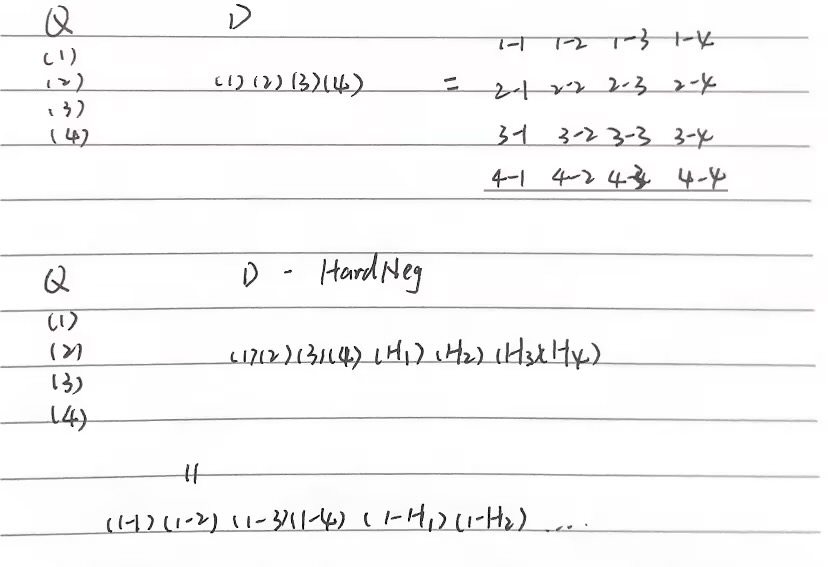 Q D
(1) 1-1 1-2 1-3 1-4
(2) (1) (2) (3) (4) = 2-1 2-2 2-3 2-4
(3)
(4) 3-1 3-2 3-3 3-4
4-1 4-2 4-3 4-4
Q D - HardNeg
(1)
(2) (1) (2) (3) (4) (H1) (H2) (H3) (H4)
(3)
(4)
11
(1-1) (1-2) (1-3) (1-4) (1-H1) (1-H2) ....